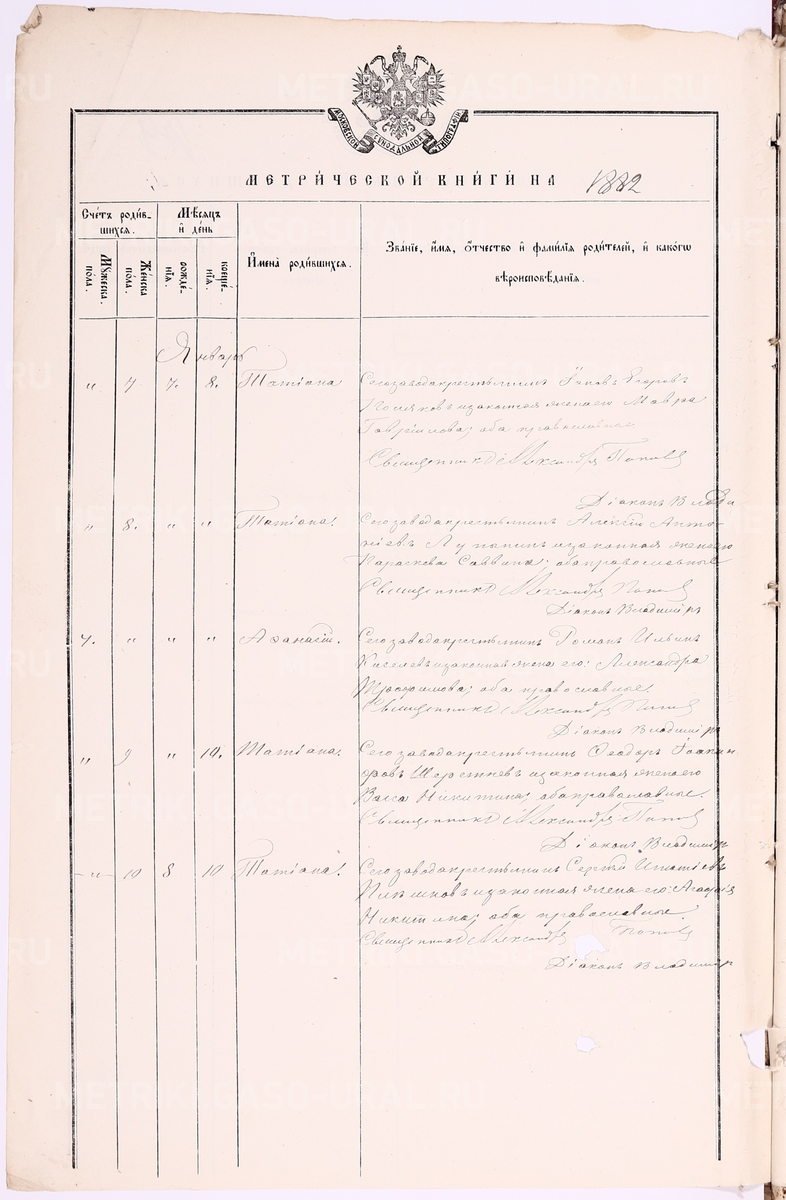 МОСКОВСКОЙ СѴНОДАЛЬНОЙ ТИПОГРАФІИ
МЕТРИ́ЧЕСКОЙ КНИ́ГИ НА 1882
Сче́тъ роди́в-
шихся.
Мѣ́сяцъ
и҆ де́нь
Мꙋ́жеска
по́ла.
Же́нска
по́ла.
рожде́-
нїя.
креще́-
нїя.
И҆мена̀ роди́вшихся.
Зва́нїе, и҆́мя, ѻ҆́тчество и҆ фами́лїя роди́телей, и҆ како́гѡ
вѣроисповѣ́данїя.
Январь
„ 7 7. 8. Татіана Сего завода крестьянинъ Іаковъ Егоровъ
Поляковъ и законная жена его Мавра
Гавриилова; оба православные.
Священникъ Александръ Поповъ
Діаконъ Влади
„ 8. „ „ Татіана. Сего завода крестьянинъ Алексій Анто-
ніевъ Лупанинъ и законная жена его
Параскева Саввина; оба православные
Священникъ Александръ Попов
Діаконъ Владимір
7. „ „ „ Аѳанасій. Сего завода крестьянинъ Романъ Ильинъ
Киселевъ и законная жена его: Александра
Трофимова; оба православные.
Священникъ Александръ Попов
Діаконъ Владимір
„ 9 „ 10. Татіана. Сего завода крестьянинъ Ѳеодоръ Іоаким
ровъ Шерстневъ и законная жена его
Васса Никитина; оба православные.
Священникъ Александръ Попов
Діаконъ Владимір
„ 10 8 10 Татіана. Сего завода крестьянинъ Сергій Игнатіевъ
и законная жена его: Агафія
Никитина; оба православные
Священникъ Александръ Попов
Діаконъ Владимір
METRIKAGASO-URAL.RU